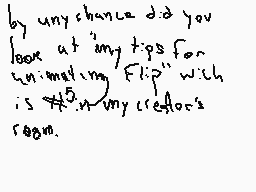 by any chance did you
look at "my tips for
animating Flip" wich
is #5 in my creator's
room.